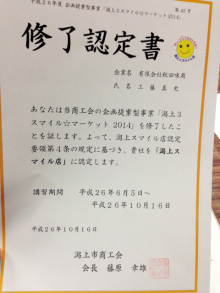 平成26年度 企画提案型事業「潟上3スマイル☆マーケット2014」
第45号
修了認定書
企業名 有限会社秋田味商
氏名 工藤真史
あなたは当商工会の企画提案型事業「潟上3
スマイル☆マーケット 2014」を修了したこ
とを証します。よって、潟上スマイル店認定
要領第4条の規定に基づき、貴社を「潟上ス
マイル店」に認定します。
講習期間 平成26年6月5日~
平成26年10月16日
平成26年10月16日
潟上市商工会
会長 藤原 幸雄